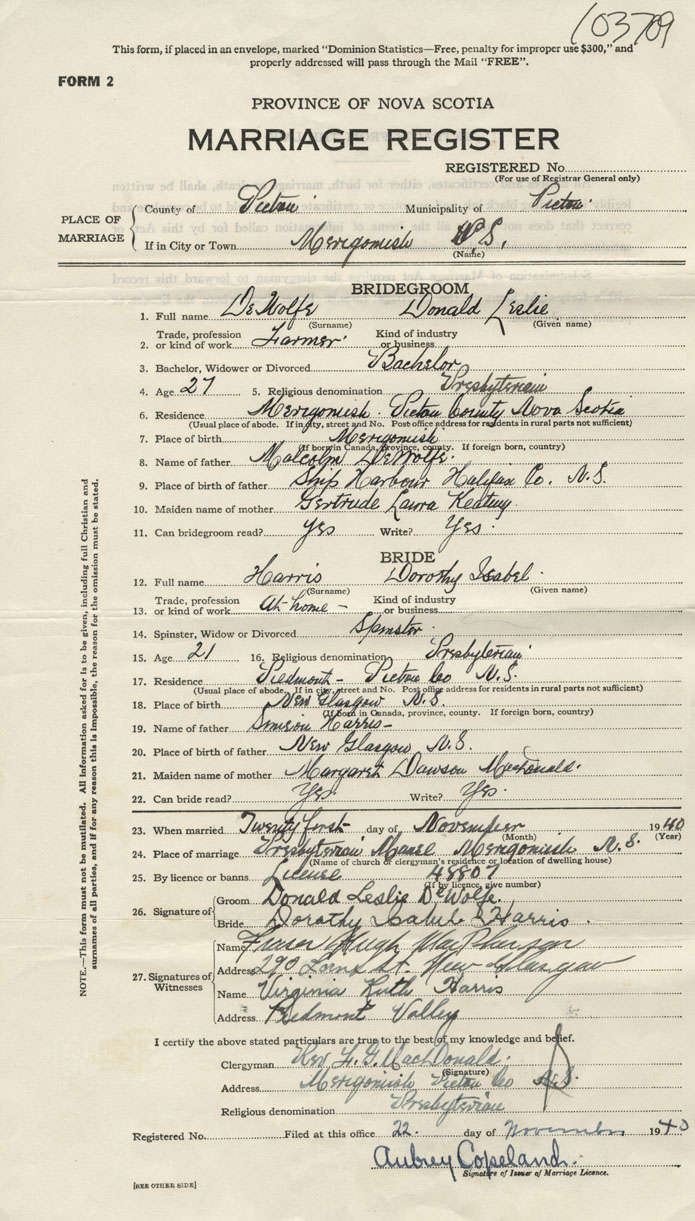 103709
This form, if placed in an envelope, marked "Dominion Statistics—Free, penalty for improper use $300," and
properly addressed will pass through the Mail "FREE".
FORM 2
PROVINCE OF NOVA SCOTIA
MARRIAGE REGISTER
REGISTERED No.
(For use of Registrar General only)
PLACE OF MARRIAGE
County of Pictou Municipality of Pictou
If in City or Town Merigomish N.S.
(Name)
BRIDEGROOM
1. Full name DeWolfe Donald Leslie
(Surname) (Given name)
2. Trade, profession or kind of work Farmer Kind of industry or business
3. Bachelor, Widower or Divorced Bachelor
4. Age 27 5. Religious denomination Presbyterian
6. Residence Merigomish Pictou County Nova Scotia
(Usual place of abode. If in city, street and No. Post office address for residents in rural parts not sufficient)
7. Place of birth Merigomish
(If born in Canada, province, county. If foreign born, country)
8. Name of father Malcolm DeWolfe
9. Place of birth of father Ship Harbour Halifax Co. N.S.
10. Maiden name of mother Gertrude Laura Keating
11. Can bridegroom read? Yes Write? Yes
BRIDE
12. Full name Harris Dorothy Isabel
(Surname) (Given name)
13. Trade, profession or kind of work At home - Kind of industry or business
14. Spinster, Widow or Divorced Spinster
15. Age 21 16. Religious denomination Presbyterian
17. Residence Piedmont - Pictou Co N.S.
(Usual place of abode. If in city, street and No. Post office address for residents in rural parts not sufficient)
18. Place of birth New Glasgow N.S.
(If born in Canada, province, county. If foreign born, country)
19. Name of father Simeon Harris -
20. Place of birth of father New Glasgow N.S.
21. Maiden name of mother Margaret Dawson Macdonald
22. Can bride read? Yes Write? Yes
23. When married Twenty first day of November 1940
(Month) (Year)
24. Place of marriage Presbyterian Manse Merigomish N.S.
(Name of church or clergyman's residence or location of dwelling house)
25. By licence or banns License 48807
(If by licence, give number)
26. Signature of
Groom Donald Leslie DeWolfe
Bride Dorothy Harris
27. Signatures of Witnesses
Name Fraser Hugh MacPherson
Address 290 St. New Glasgow
Name Virginia Ruth Harris
Address Piedmont Valley
I certify the above stated particulars are true to the best of my knowledge and belief.
Clergyman Rev. MacDonald
(Signature)
Address Merigomish Pictou Co N.S.
Religious denomination Presbyterian
Registered No. Filed at this office 22 day of November 1940
Aubrey Copeland
Signature of Issuer of Marriage Licence.
[SEE OTHER SIDE]
NOTE.—This form must not be mutilated. All information asked for is to be given, including full Christian and
surnames of all parties, and if for any reason this is impossible, the reason for the omission must be stated.